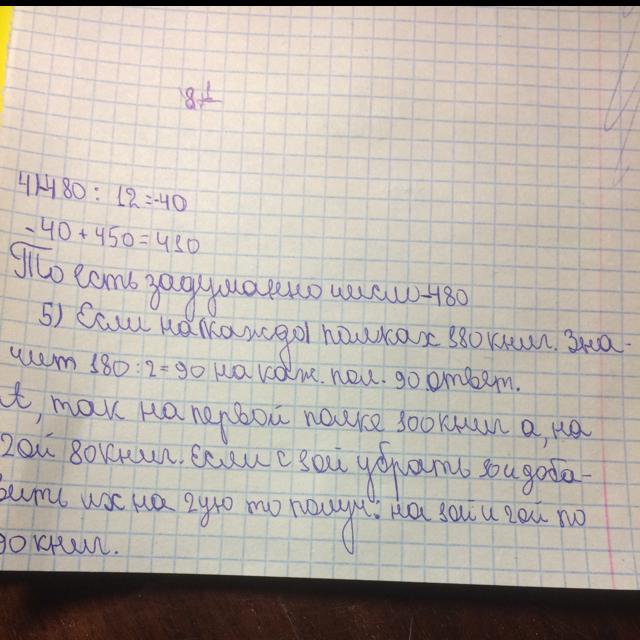 4)-480 : 12=-40
-40+450=410
То есть задуманно число-480
5) Если на каждо полках 180 книг. Зна-
чит 180:2=90 на каж. пол. 90 ответ.
так на первой полке 100 книг а, на
2ой 80 книг. Если с 1ой убрать 10 и доба-
вить их на 2ую то получ. на 1ой и 2ой по
90 книг.